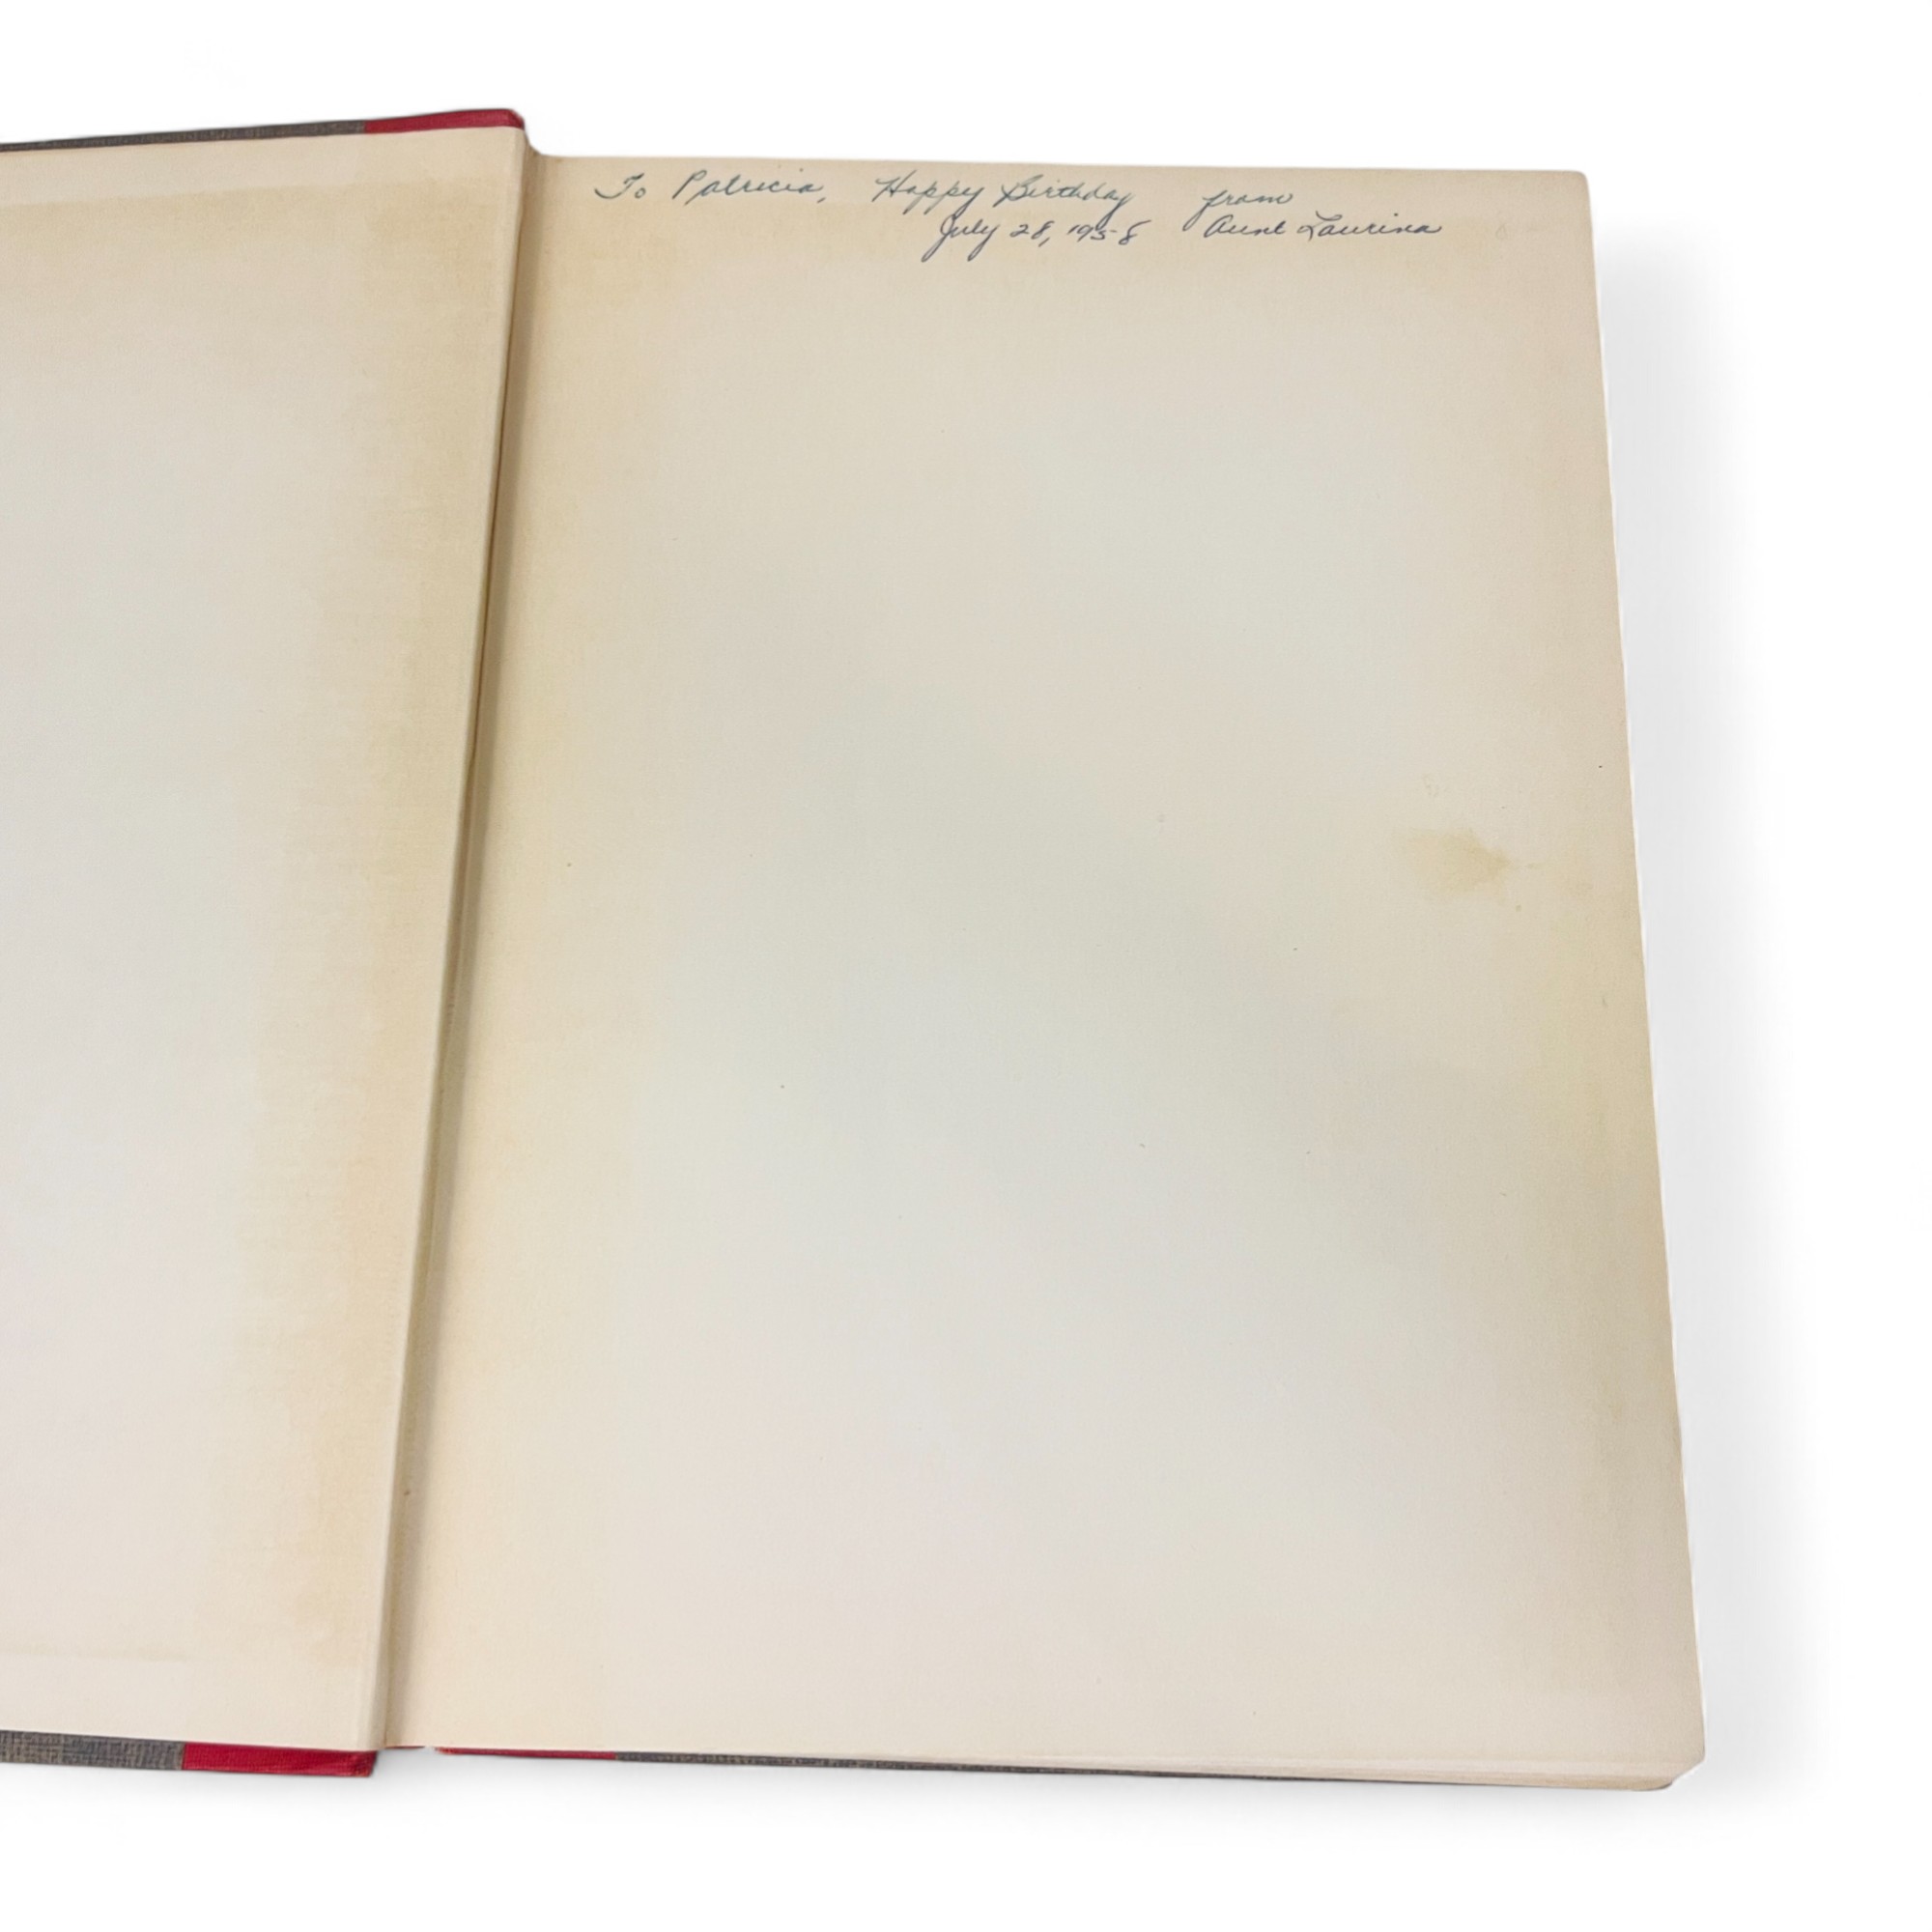 To Patricia, Happy Birthday from
July 28, 1958 Aunt Laurina